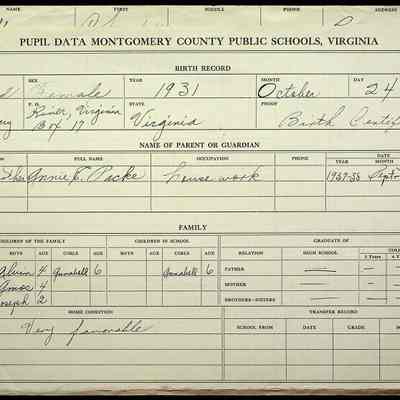 NAME FIRST MIDDLE PHONE ADDRESS
D
PUPIL DATA MONTGOMERY COUNTY PUBLIC SCHOOLS, VIRGINIA
BIRTH RECORD
SEX YEAR MONTH DAY
Female 1931 October 24
P. O. STATE PROOF
River, Virginia
Box 17 Virginia Birth Certif
NAME OF PARENT OR GUARDIAN
FULL NAME OCCUPATION PHONE DATE
YEAR MONTH
Annie E. house work 1937-38 Sept
FAMILY
CHILDREN OF THE FAMILY CHILDREN IN SCHOOL GRADUATE OF
BOYS AGE GIRLS AGE BOYS AGE GIRLS AGE RELATION HIGH SCHOOL
2 Years 4
Alvin 4 Annabell 6 Annabell 6 FATHER — —
Amos 4 MOTHER — —
Joseph 2 BROTHERS-SISTERS — —
HOME CONDITION TRANSFER RECORD
Very favorable SCHOOL FROM DATE GRADE SCHOOL TO DATE